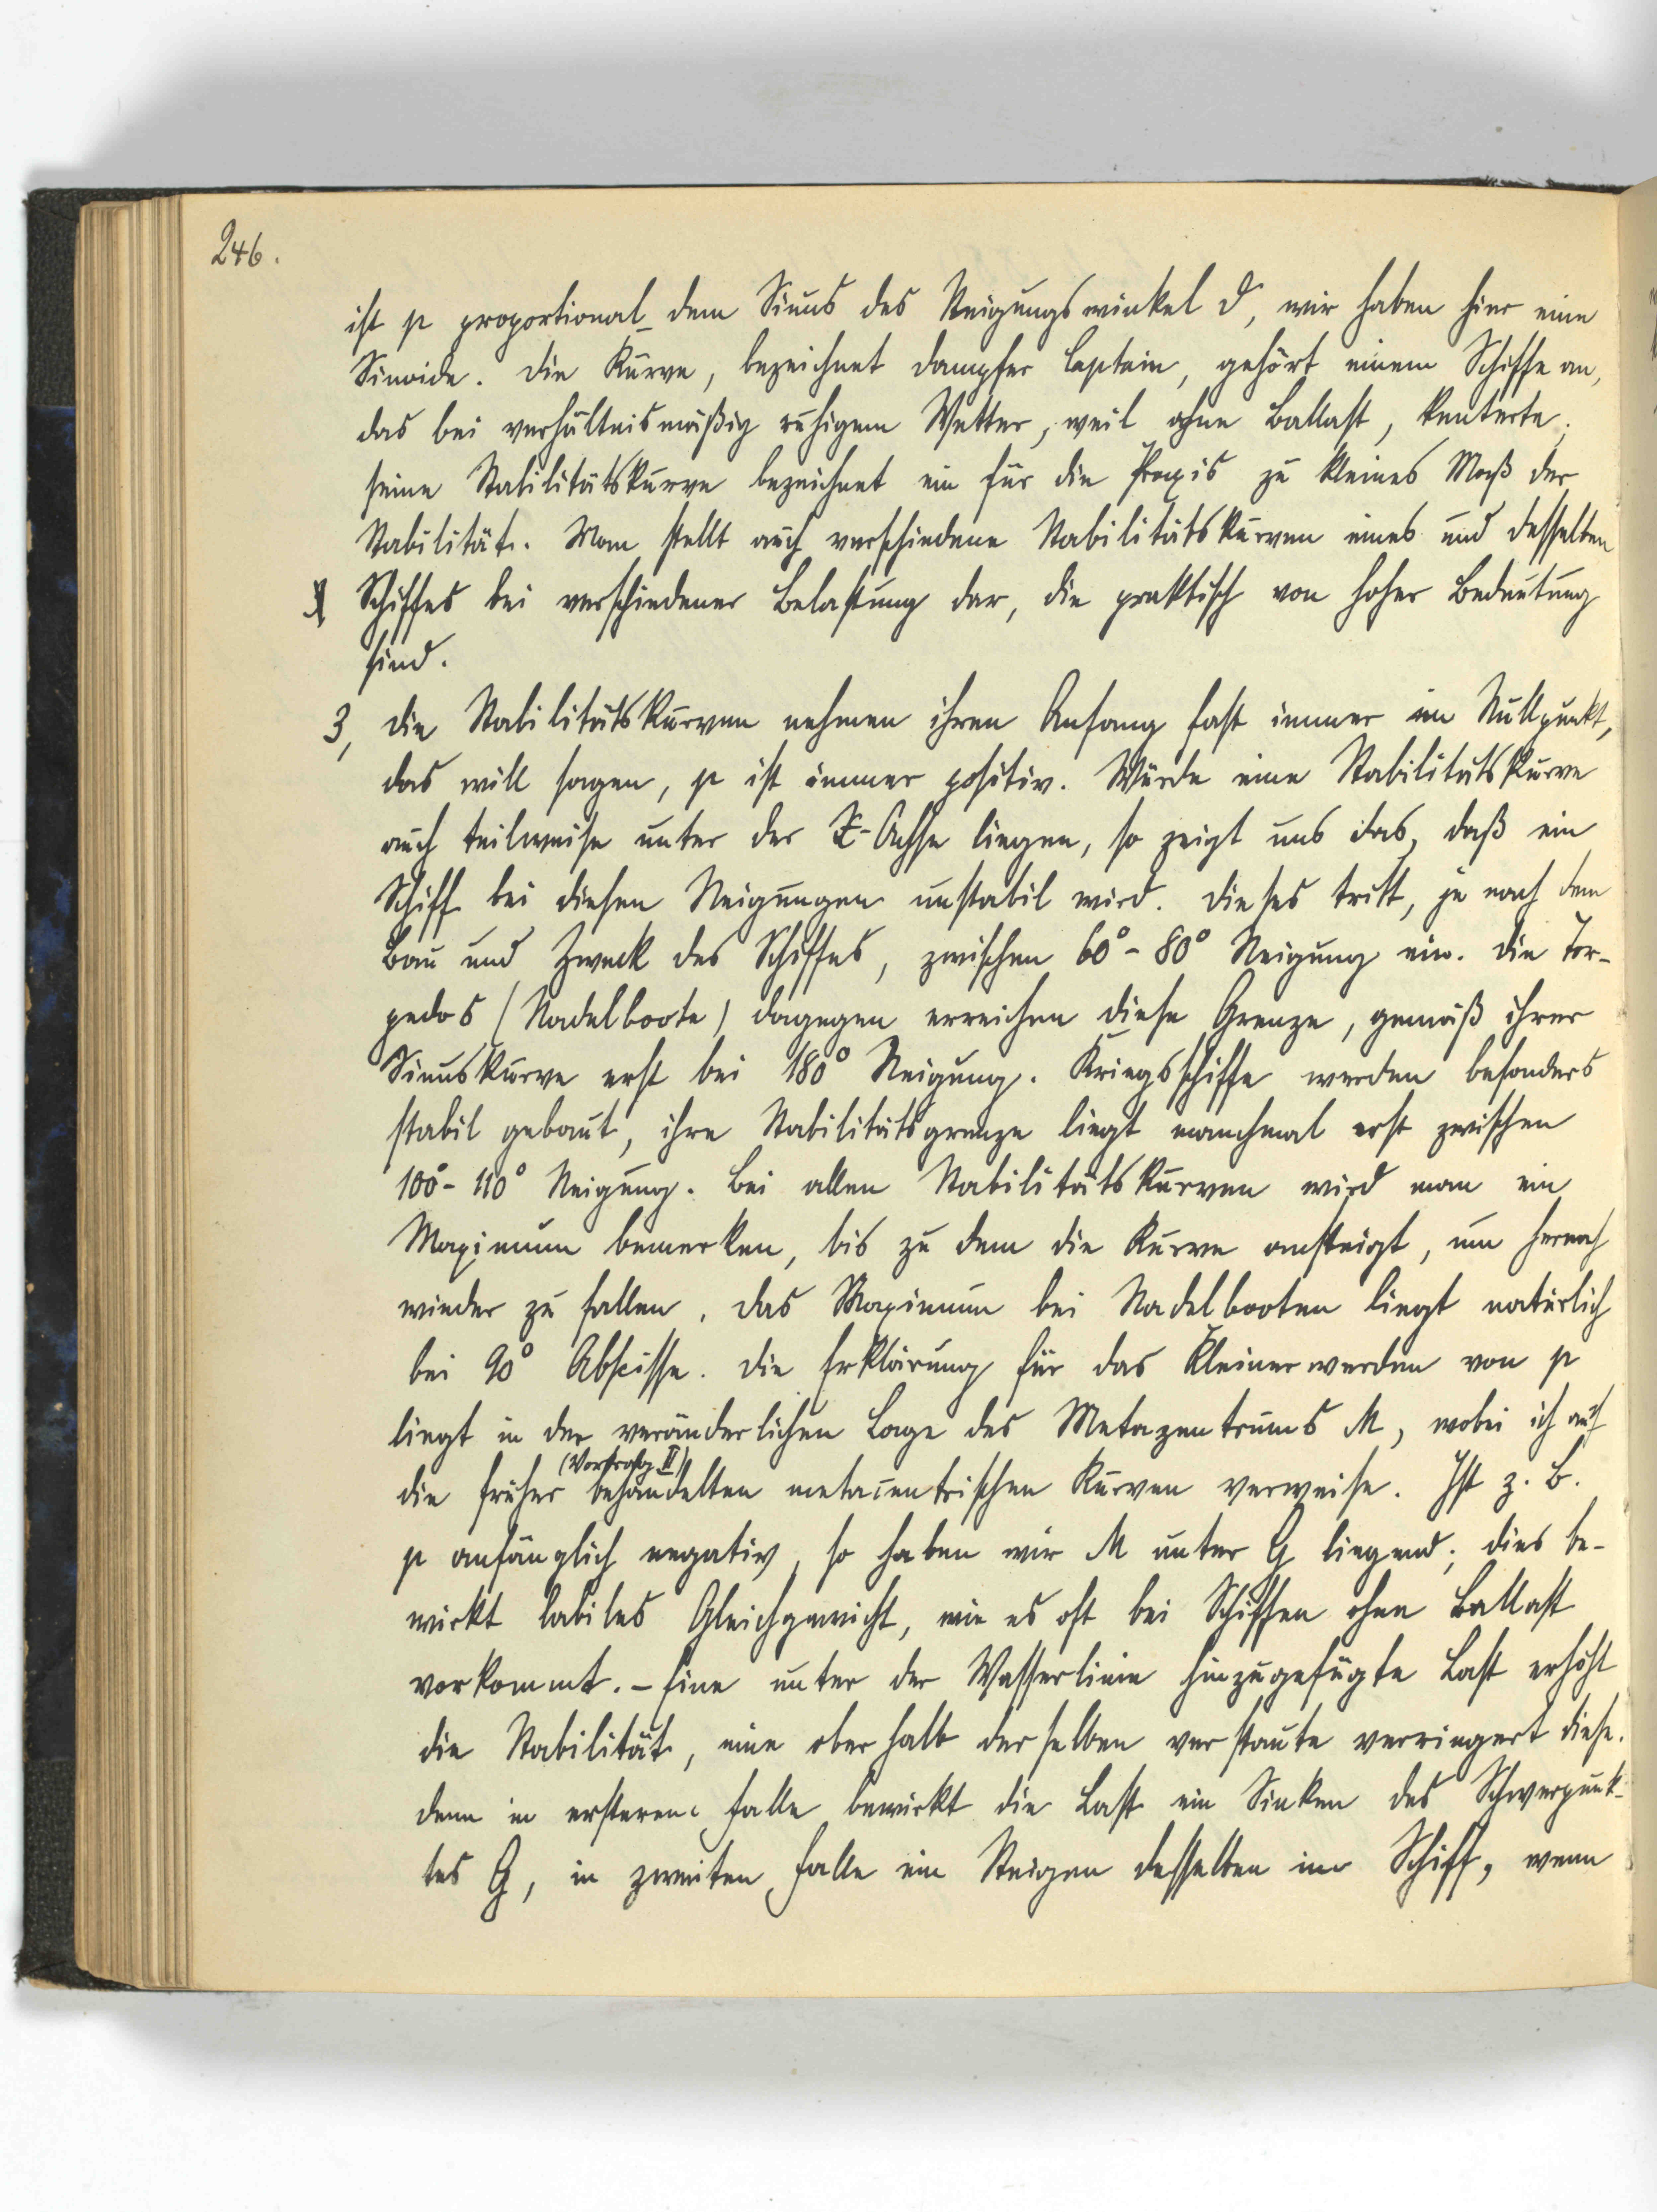 246.
ist p proportional dem Sinus des Neigungswinkel δ, wir haben hier eine
Sinoide. Die Kurve, bezeichnet Dampfer Captain, gehört einem Schiffe an,
das bei verhältnismäßig ruhigem Wetter, weil ohne Ballast, kenterte;
seine Stabilitätskurve bezeichnet ein für die Praxis zu kleines Maß der
Stabilität. Man stellt auch verschiedene Stabilitätskurven eines und desselben
Schiffes bei verschiedener Belastung dar, die praktisch von hoher Bedeutung
sind.
3, Die Stabilitätskurven nehmen ihren Anfang fast immer im Nullpunkt,
das will sagen, p ist immer positiv. Würde eine Stabilitätskurve
auch teilweise unter der X-Achse liegen, so zeigt uns das, daß ein
Schiff bei diesen Neigungen unstabil wird. Dieses tritt, je nach dem
Bau und Zweck des Schiffes, zwischen 60°-80° Neigung ein. Die Tor-
pedos (Nadelboote) dagegen erreichen diese Grenze, gemäß ihrer
Sinuskurve erst bei 180° Neigung. Kriegsschiffe werden besonders
stabil gebaut, ihre Stabilitätsgrenze liegt manchmal erst zwischen
100°-110° Neigung. Bei allen Stabilitätskurven wird man ein
Maximum bemerken, bis zu dem die Kurve ansteigt, um hernach
wieder zu fallen. Das Maximum bei Nadelbooten liegt natürlich
bei 90° Abscisse. Die Erklärung für das Kleinerwerden von p
liegt in der veränderlichen Lage des Metazentrums M, wobei ich auf
(Vortrag II)
die früher behandelten metacentrischen Kurven verweise. Ist z. B.
p anfänglich negativ, so haben wir M unter G liegend; dies be-
wirkt labiles Gleichgewicht, wie es oft bei Schiffen ohne Ballast
vorkommt. - Eine unter der Wasserlinie hinzugefügte Last erhöht
die Stabilität, eine oberhalb derselben verstaute verringert diese.
denn in ersterem Falle bewirkt die Last ein Sinken des Schwerpunk-
tes G, in zweiten Falle ein Steigen desselben im Schiff, wenn